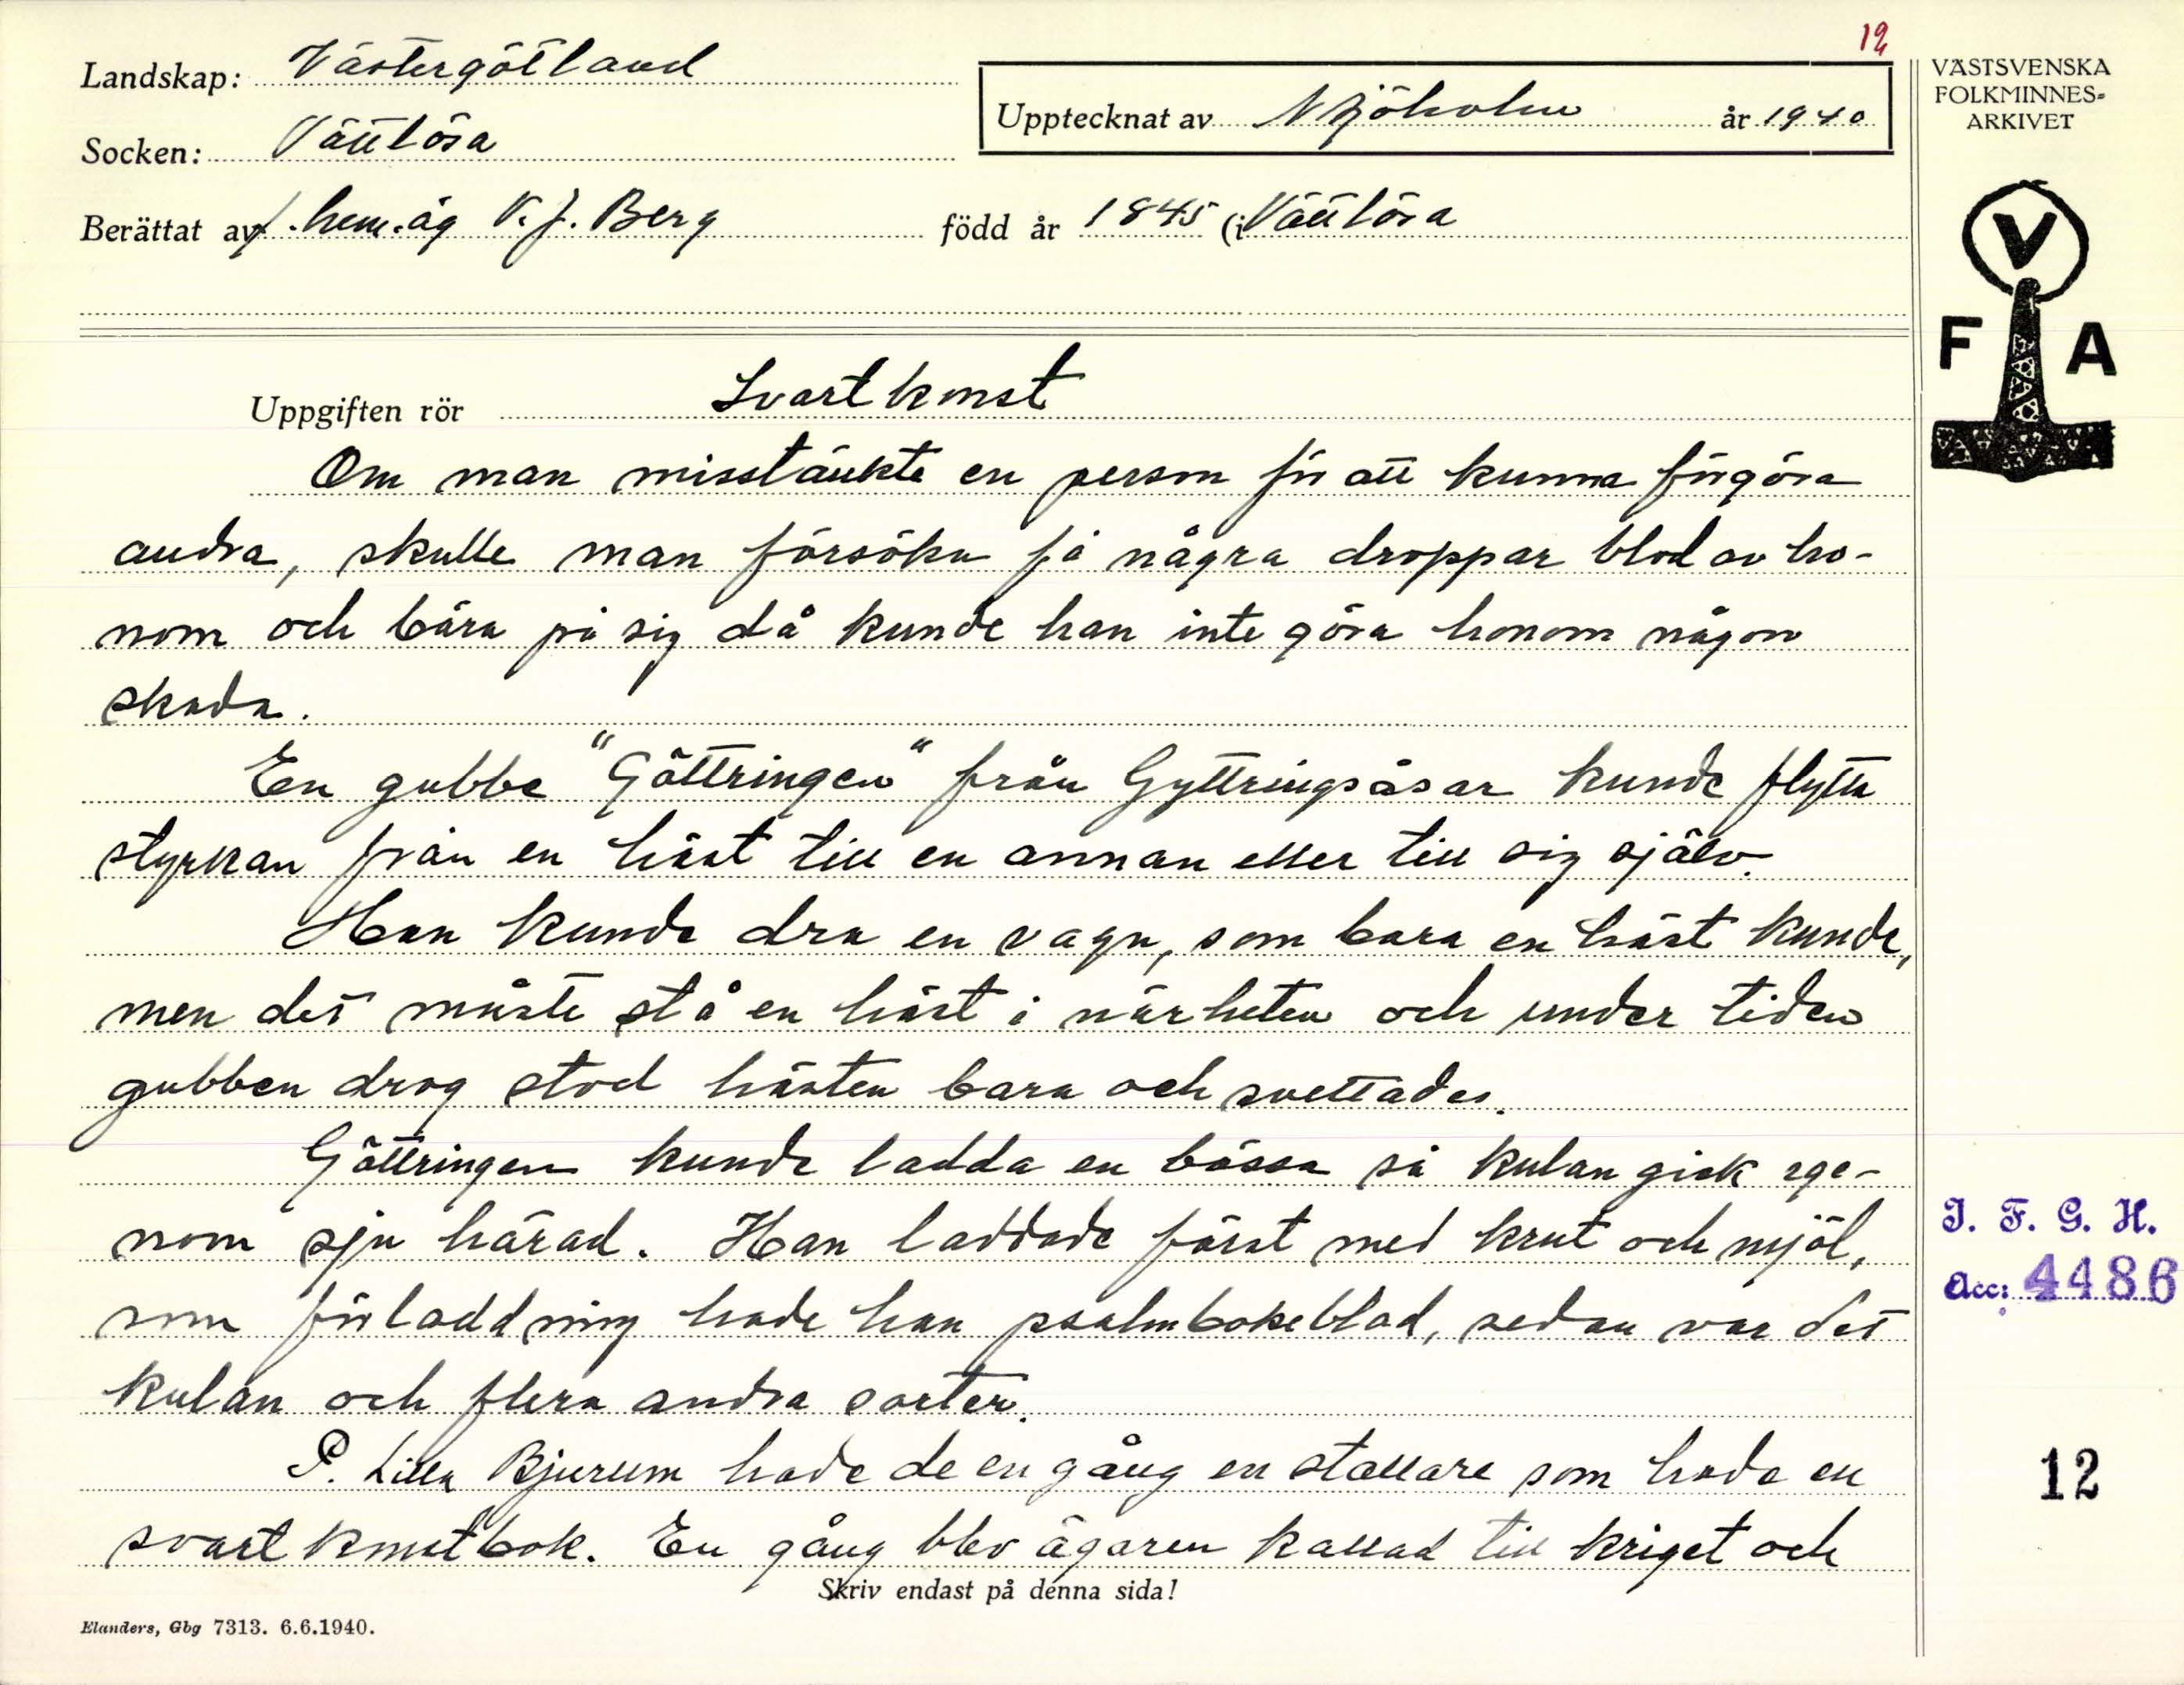 12
Landskap: Västergötland
Upptecknat av N Sjöholm år 1940
Socken: Vättlösa
Berättat av f. hem.äg V. J. Berg född år 1845 (i Vättlösa
VÄSTSVENSKA
FOLKMINNES=
ARKIVET
V
F A
Uppgiften rör Svartkonst
Om man misstänkte en person för att kunna förgöra
andra, skulle man försöka få några droppar blod av ho-
nom och bära på sig då kunde han inte göra honom någon
skada.
En gubbe "Göttringen" från Gyttringsåsar kunde flytta
styrkan från en häst till en annan eller till sig själv.
Han kunde dra en vagn, som bara en häst kunde,
men det måste stå en häst i närheten och under tiden
gubben drog stod hästen bara och svettades.
Göttringen kunde ladda en bössa så kulan gick ige-
nom sju härad. Han laddade först med krut och mjöl,
som förladdning hade han psalmboksblad, sedan var det
kulan och flera andra sorter.
P. Lilla Bjurum hade de en gång en stallare som hade en
svartkonstbok. En gång blev ägaren kallad till kriget och
Skriv endast på denna sida!
Elanders, Gbg 7313. 6.6.1940.
I. F. G. H.
Acc: 4486
12